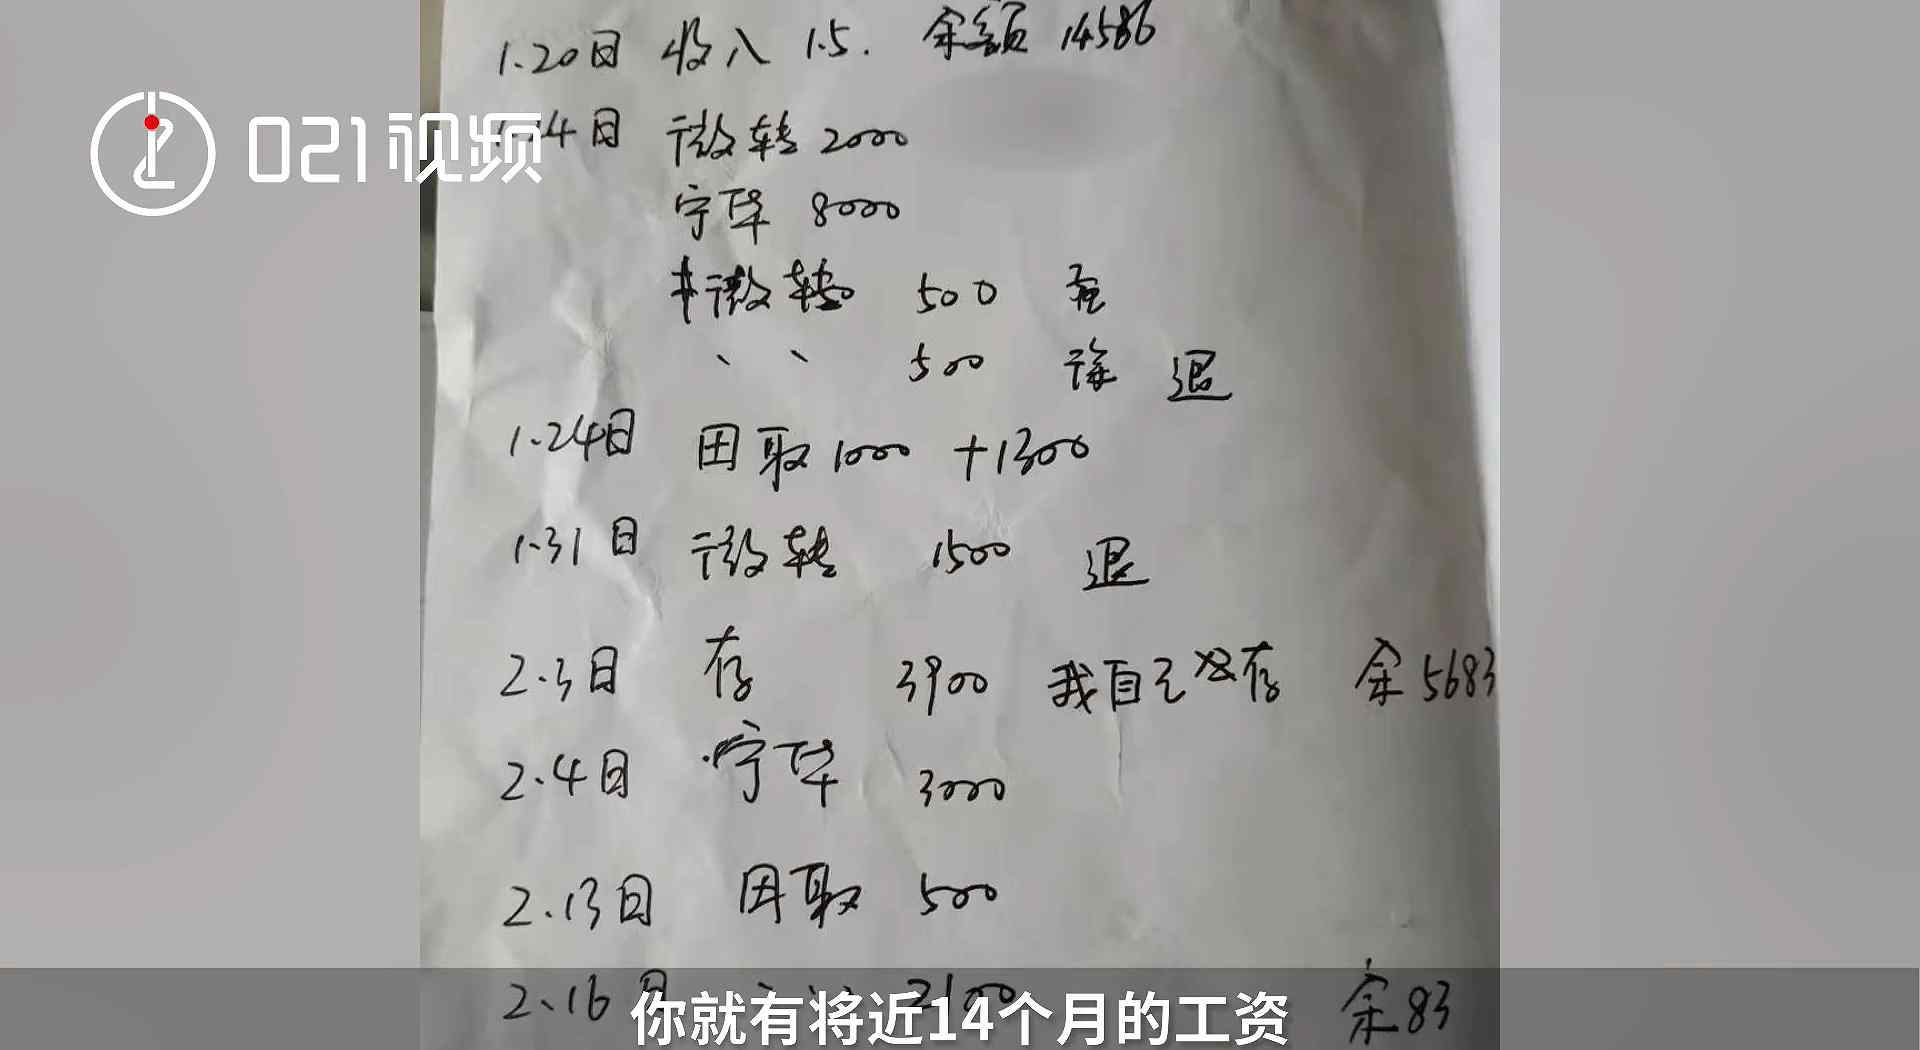 1.20日 收入 1.5. 余额 14586
021视频
4日 微转 2000
宁 8000
微转 500
、 、 500 退
1.24日 取 1000 +1300
1.31日 微转 1500 退
2.3日 存 3900 我自己 存 余 5683
2.4日 宁 3000
2.13日 取 500
2.16日 、 、 2100 余 83
你就有将近14个月的工资